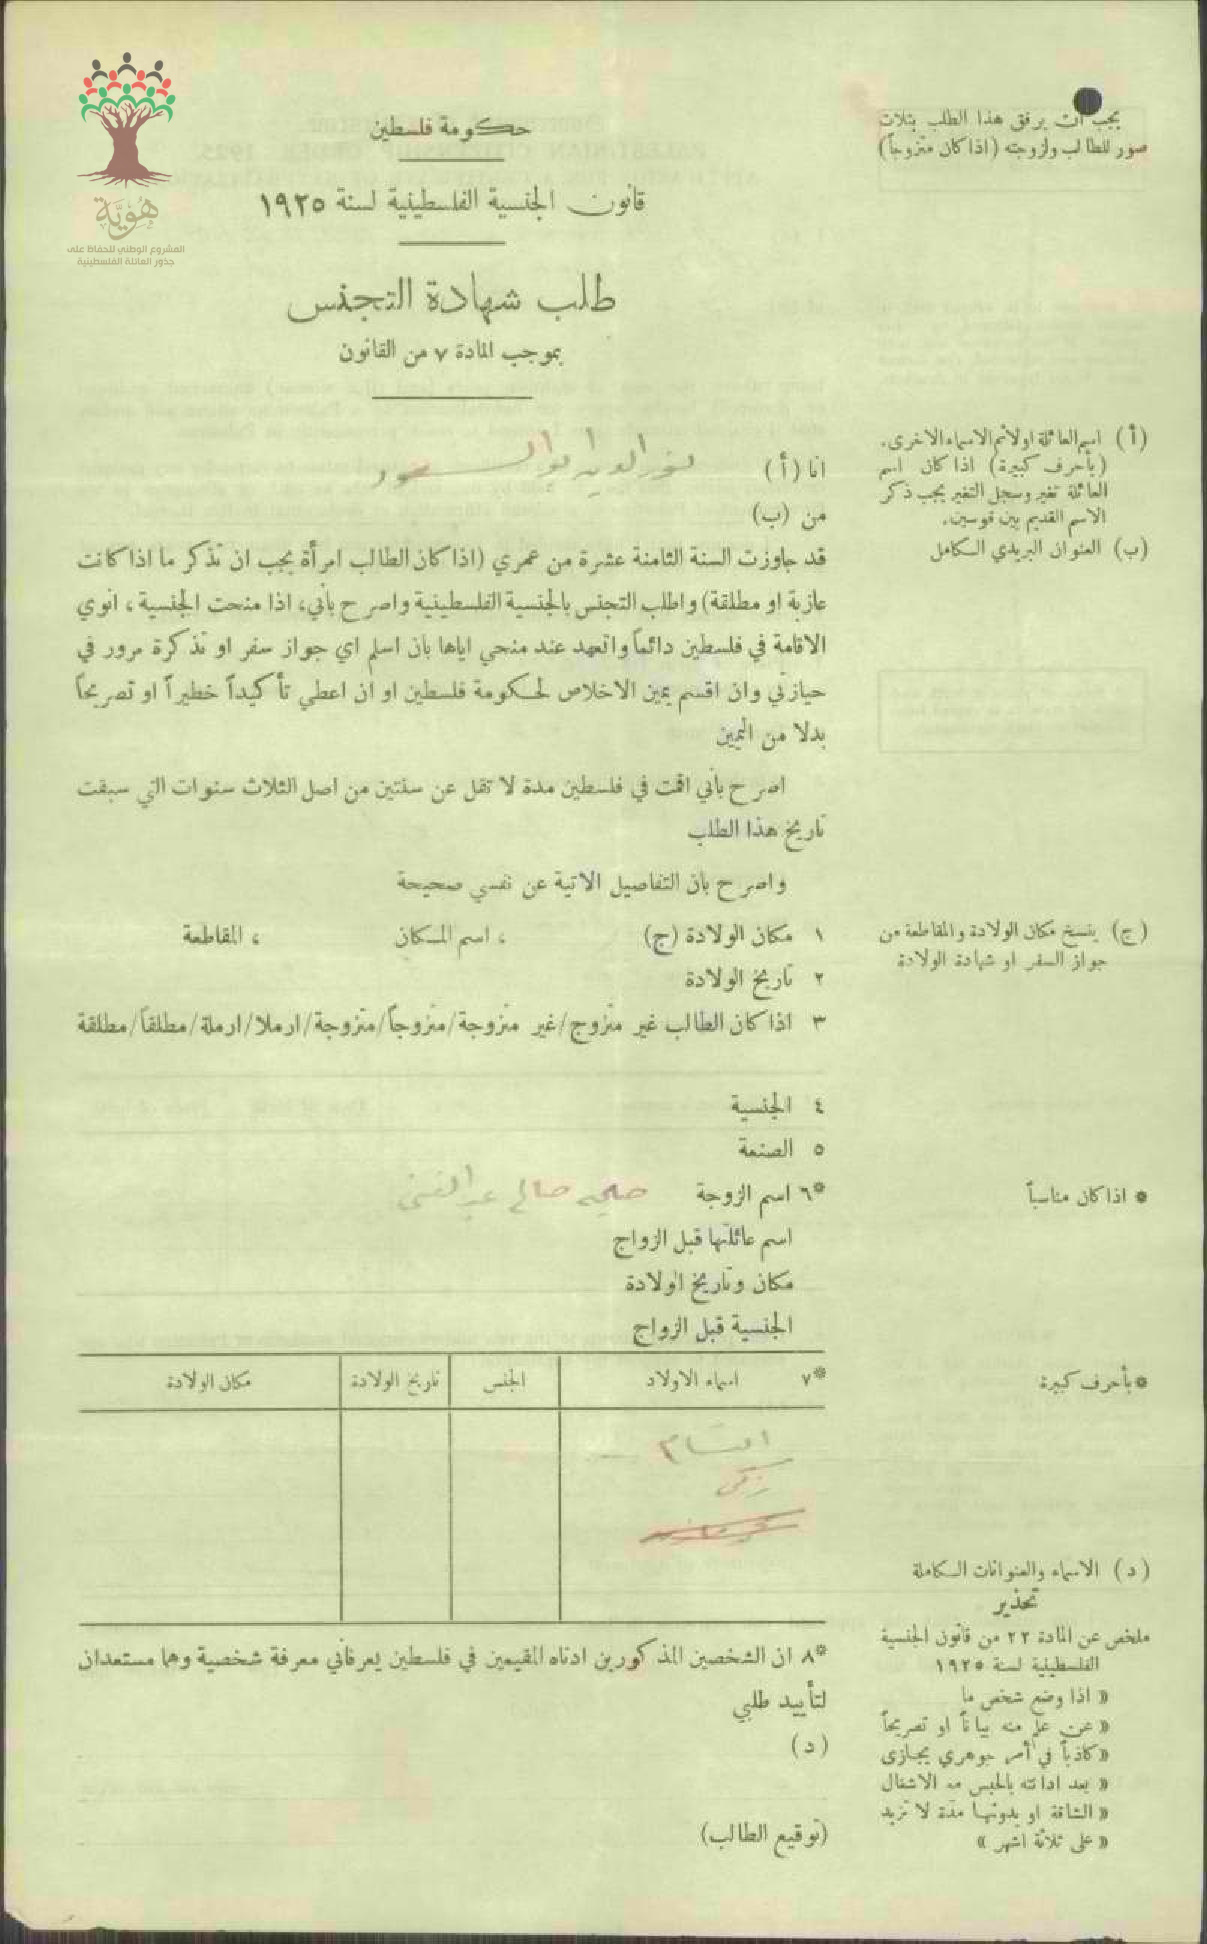 هُوِيَّة
المشروع الوطني للحفاظ على
جذور العائلة الفلسطينية
يجب ان يرفق هذا الطلب بثلاث
صور للطالب ولزوجته (اذا كان متزوجاً)
حكومة فلسطين
قانون الجنسية الفلسطينية لسنة ١٩٢٥
طلب شهادة التجنس
بموجب المادة ٧ من القانون
(أ) اسم العائلة اولا ثم الاسماء الاخرى.
(بأحرف كبيرة) اذا كان اسم
العائلة تغير وسجل التغير يجب ذكر
الاسم القديم بين قوسين.
(ب) العنوان البريدي الكامل
انا (أ)
من (ب)
قد جاوزت السنة الثامنة عشرة من عمري (اذا كان الطالب امرأة يجب ان تذكر ما اذا كانت
عازبة او مطلقة) واطلب التجنس بالجنسية الفلسطينية واصرح بأني، اذا منحت الجنسية، انوي
الاقامة في فلسطين دائماً واتعهد عند منحي اياها بان اسلم اي جواز سفر او تذكرة مرور في
حيازتي وان اقسم يمين الاخلاص لحكومة فلسطين او ان اعطي تأكيداً خطيراً او تصريحاً
بدلا من اليمين
اصرح بأني اقمت في فلسطين مدة لا تقل عن سنتين من اصل الثلاث سنوات التي سبقت
تاريخ هذا الطلب
واصرح بان التفاصيل الاتية عن نفسي صحيحة
(ج) ينسخ مكان الولادة والمقاطعة من
جواز السفر او شهادة الولادة
١ مكان الولادة (ج) ، اسم المكان ، المقاطعة
٢ تاريخ الولادة
٣ اذا كان الطالب غير متزوج/غير متزوجة/متزوجاً/متزوجة/ارملا/ارملة/مطلقاً/مطلقة
٤ الجنسية
٥ الصنعة
* اذا كان مناسباً
*٦ اسم الزوجة صالح عبد الغني
اسم عائلتها قبل الزواج
مكان وتاريخ الولادة
الجنسية قبل الزواج
* بأحرف كبيرة
*٧ اسماء الاولاد الجنس تاريخ الولادة مكان الولادة
زكي
(د) الاسماء والعنوانات الكاملة
تحذير
ملخص عن المادة ٢٢ من قانون الجنسية
الفلسطينية لسنة ١٩٢٥
« اذا وضع شخص ما
« عن علم منه بياناً او تصريحاً
« كاذباً في أمر جوهري يجازى
« بعد ادانته بالحبس مع الاشغال
« الشاقة او بدونها مدة لا تزيد
« على ثلاثة اشهر »
*٨ ان الشخصين المذكورين ادناه المقيمين في فلسطين يعرفاني معرفة شخصية وهما مستعدان
لتأييد طلبي
(د)
(توقيع الطالب)